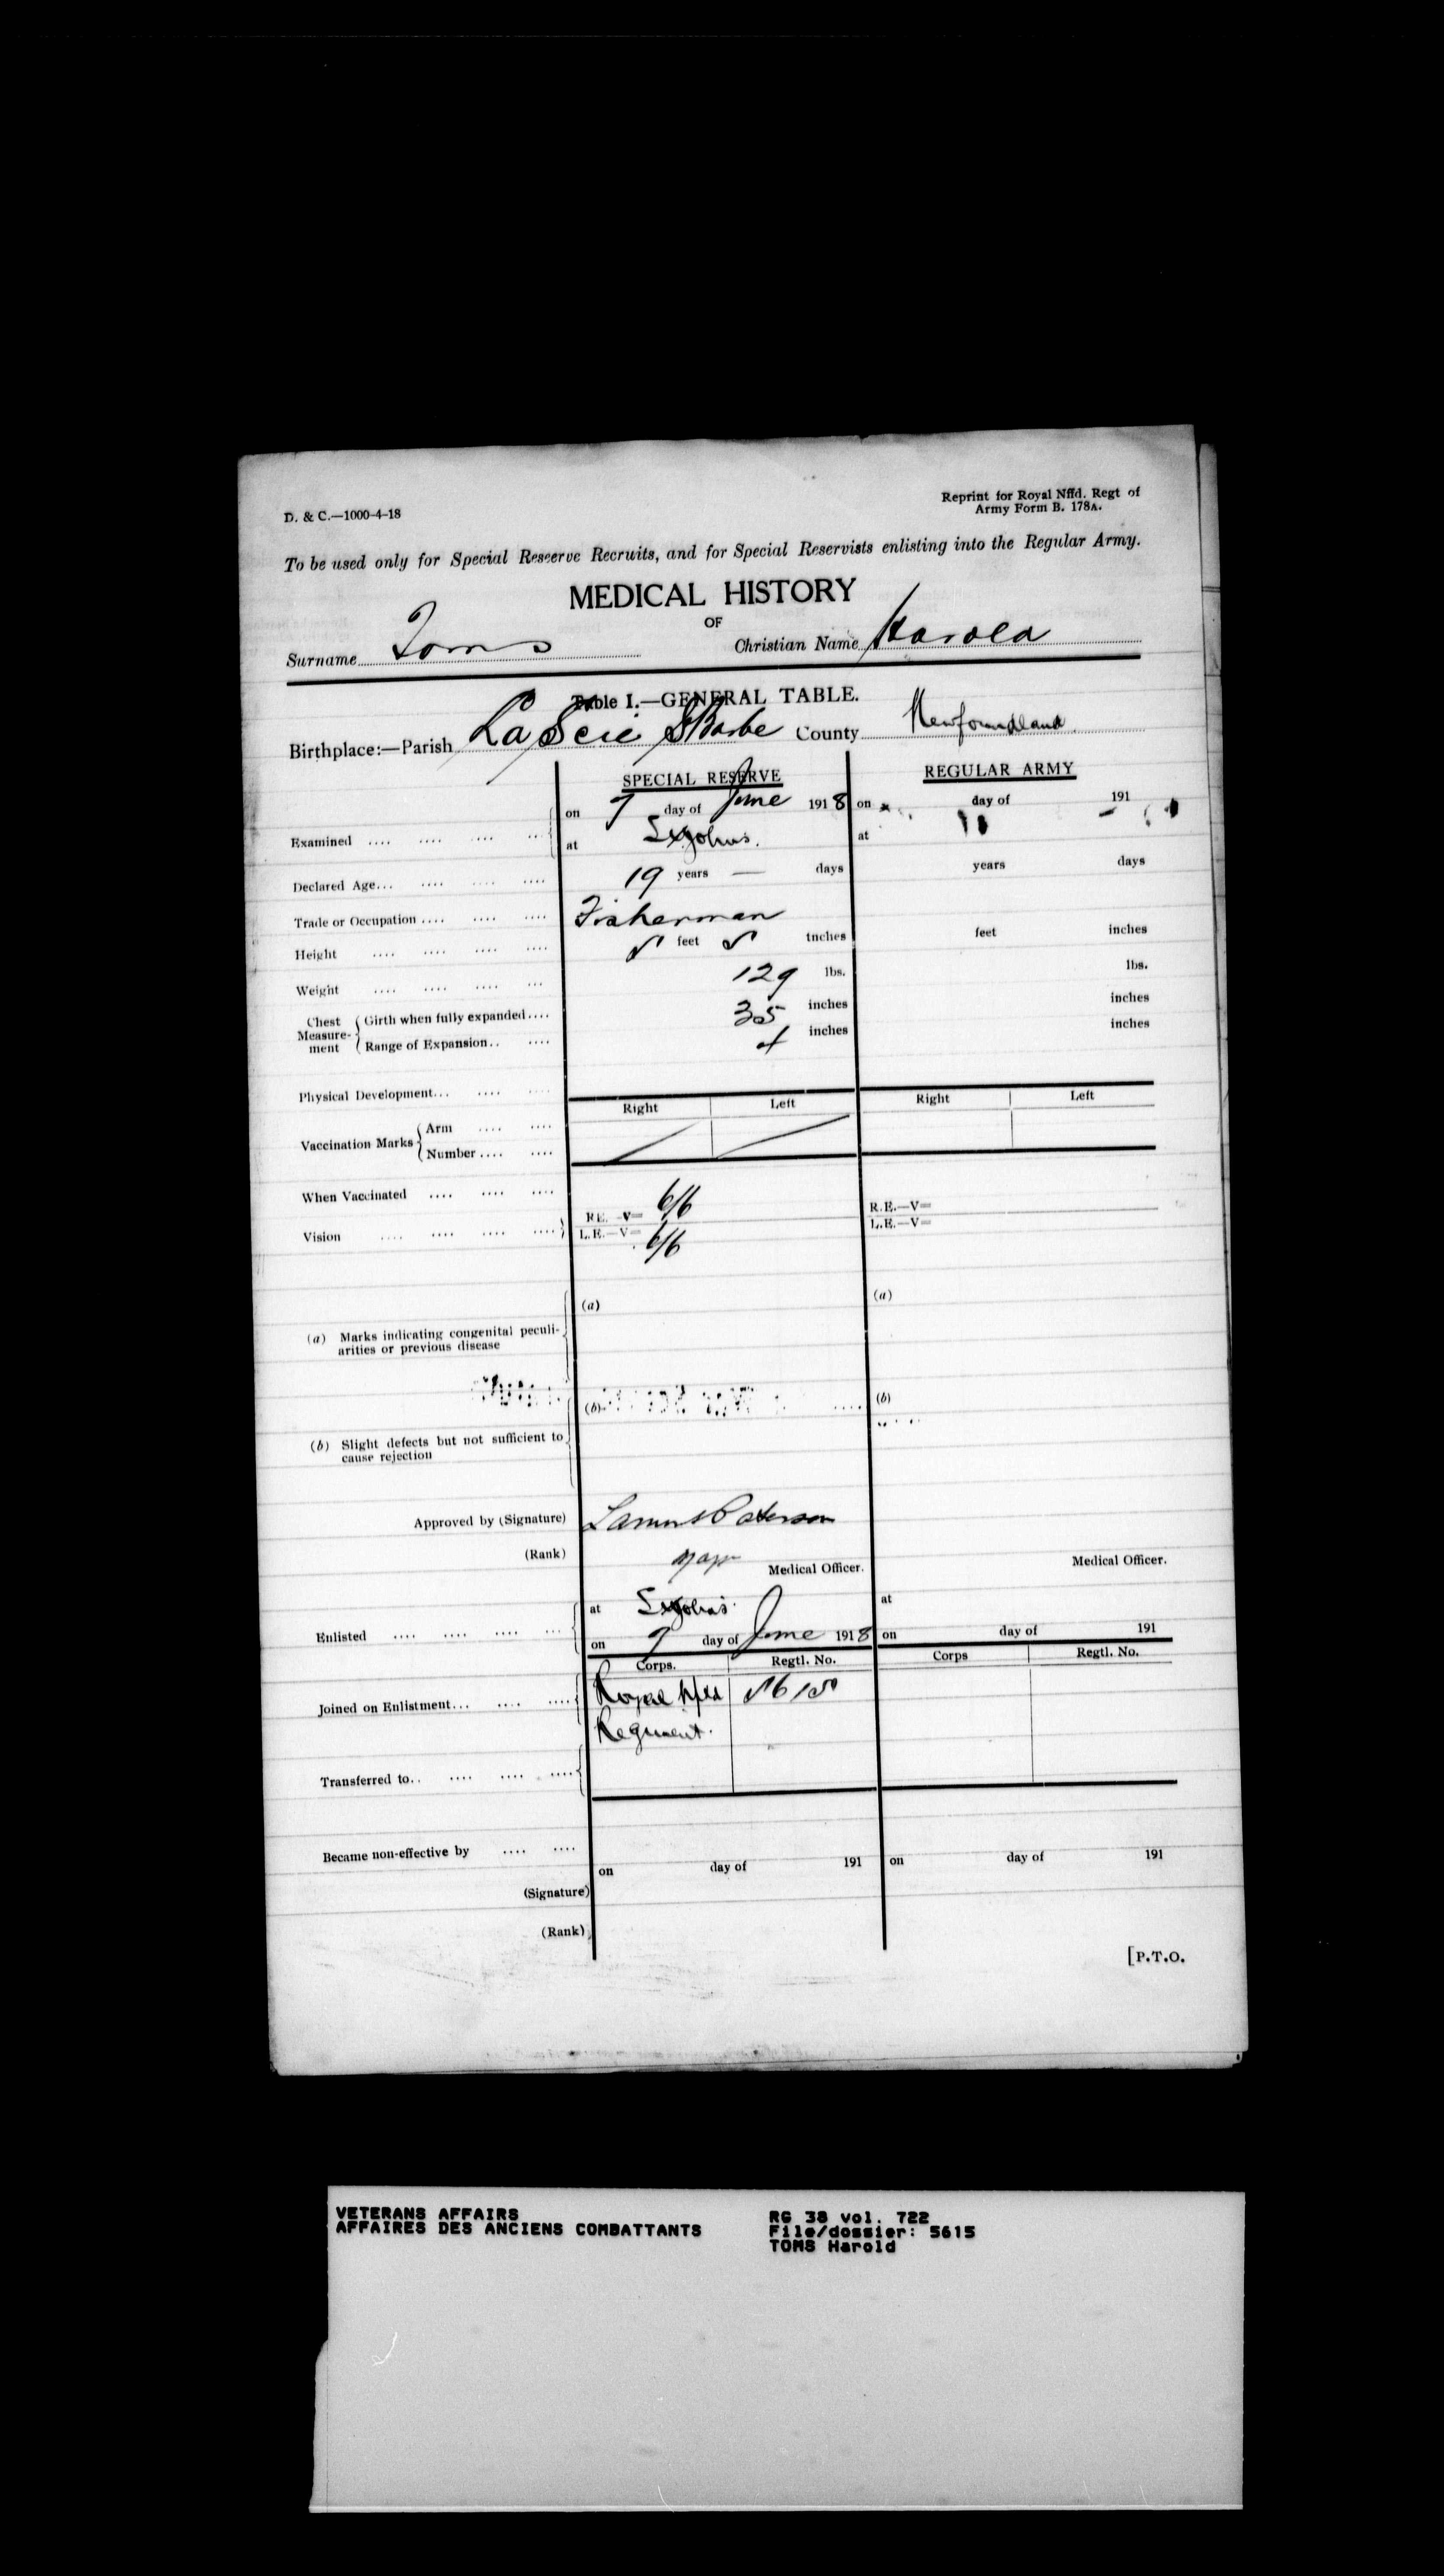 D. & C.—1000-4-18
Reprint for Royal Nffd. Regt of
Army Form B. 178A.
To be used only for Special Reserve Recruits, and for Special Reservists enlisting into the Regular Army.
MEDICAL HISTORY
OF
Surname Toms Christian Name Harold
Table I.—GENERAL TABLE.
Birthplace:—Parish LaScie St Barbe County Newfoundland
SPECIAL RESERVE REGULAR ARMY
Examined .... .... .... .... on 7 day of June 1918 on day of 191
at St Johns. at
Declared Age... .... .... .... 19 years — days years days
Trade or Occupation .... .... .... Fisherman
Height .... .... .... .... 5 feet 5 Inches feet inches
Weight .... .... .... ... 129 lbs. lbs.
Chest Measurement Girth when fully expanded.... 35 inches inches
Range of Expansion.. .... inches inches
Physical Development... .... ....
Right Left Right Left
Vaccination Marks Arm .... ....
Number .... ....
When Vaccinated .... .... ....
Vision .... .... .... .... R.E.—V= 6/6 R.E.—V=
L.E.—V= 6/6 L.E.—V=
(a) Marks indicating congenital peculi-
arities or previous disease
(a) (a)
(b) Slight defects but not sufficient to
cause rejection
(b) (b)
Approved by (Signature) Paterson
(Rank) Major Medical Officer. Medical Officer.
Enlisted .... .... .... ... at St Johns at
on 7 day of June 1918 on day of 191
Corps. Regtl. No. Corps Regtl. No.
Joined on Enlistment... .... .... Royal Nfld 5615
Regiment.
Transferred to.. .... .... ....
Became non-effective by .... ....
on day of 191 on day of 191
(Signature)
(Rank)
[P.T.O.
VETERANS AFFAIRS
AFFAIRES DES ANCIENS COMBATTANTS
RG 38 vol. 722
File/dossier: 5615
TOMS Harold